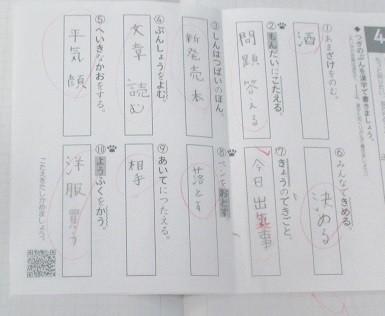 4
◆つぎのぶんを漢字で書きましょう。
①あまざけをのむ。
酒
②もんだいにこたえる。
問題 答える
③しんはつばいのほん。
新発売 本
④ぶんしょうをよむ。
文章 読む
⑤へいきなかおをする。
平気 顔
⑥みんなできめる。
決める
⑦きょうのできごと。
今日 出来事
⑧ペンをおとす
落とす
⑨あいてにつたえる。
相手
⑩ようふくをかう。
洋服 買う